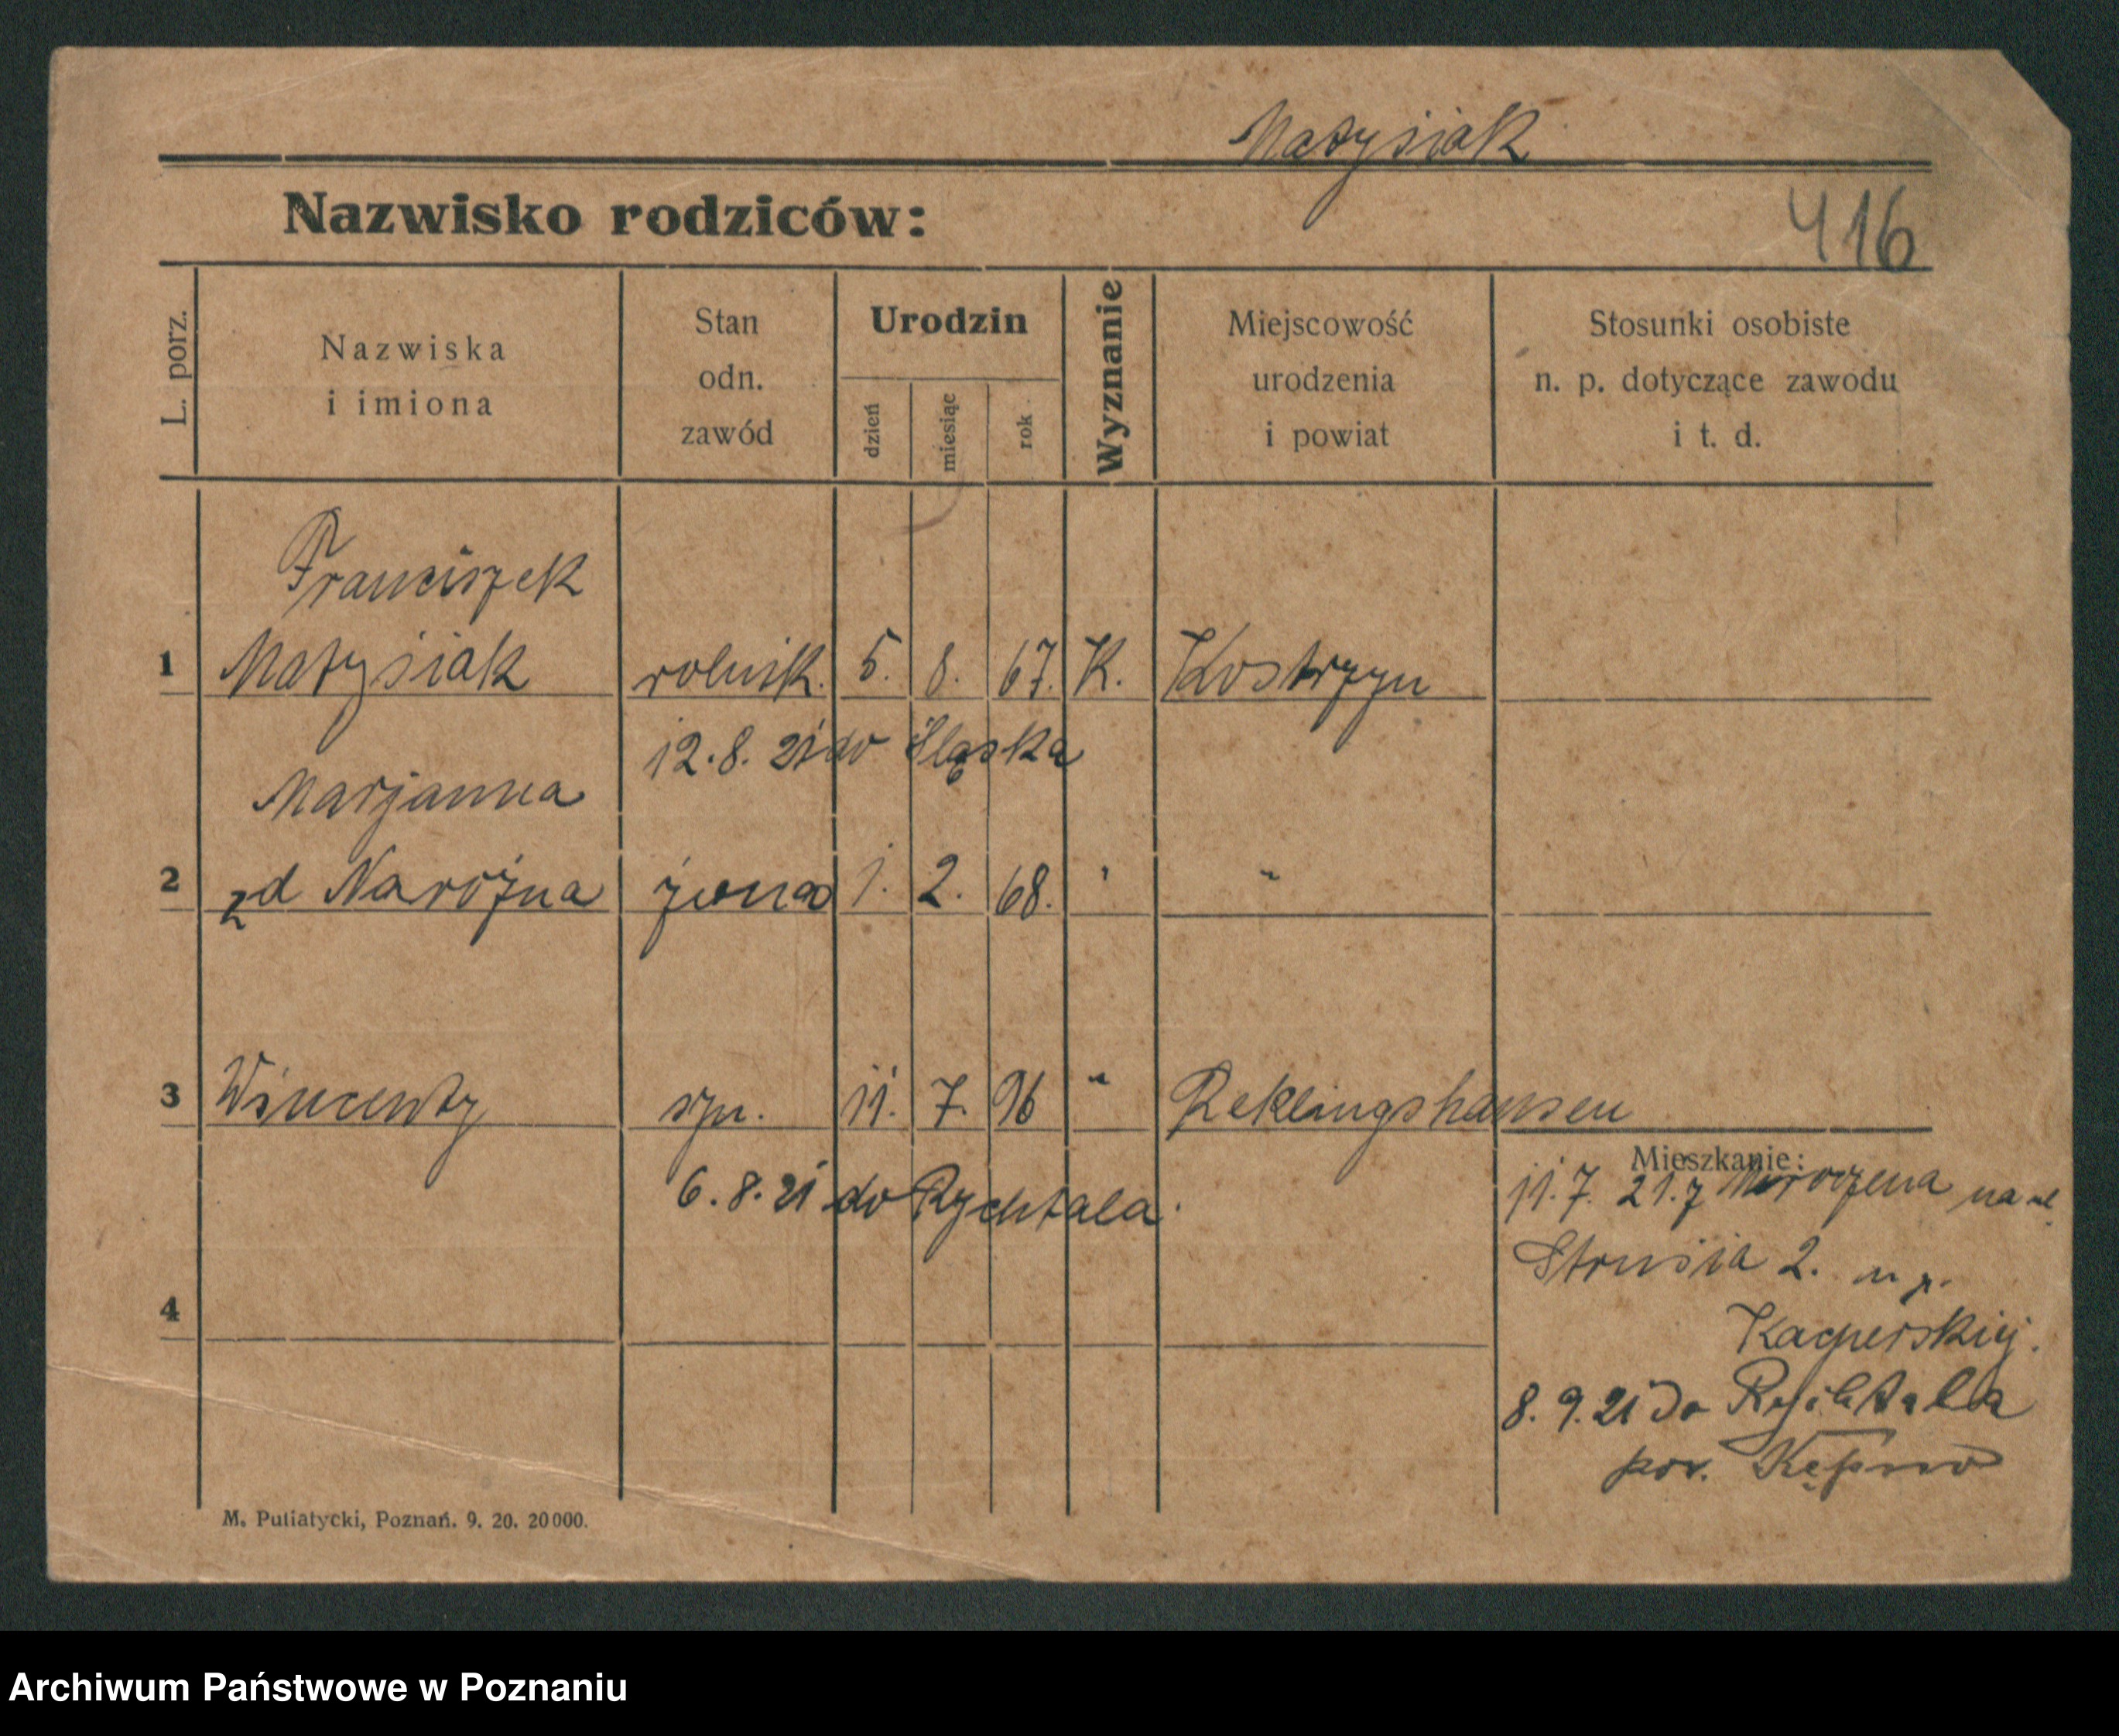 Matysiak
Nazwisko rodziców:
416
L. porz.
Nazwiska
i imiona
Stan
odn.
zawód
Urodzin
dzień
miesiąc
rok
Wyznanie
Miejscowość
urodzenia
i powiat
Stosunki osobiste
n. p. dotyczące zawodu
i t. d.
Franciszek
1 Matysiak rolnik. 5. 8. 67. K. Kostrzyn
12.8.21 do Śląska
Marjanna
2 zd Narożna żona 1. 2. 68. " "
3 Wincenty syn. 11. 7. 96 " Reklingshausen
Mieszkanie:
6.8.21 do Rychtala.
11.7.21. z na ul.
Strusia 2. u p.
4
Kacperskiej.
8.9.21 do Rychtala
pow. Kępno
M. Putiatycki, Poznań. 9. 20. 20000.
Archiwum Państwowe w Poznaniu